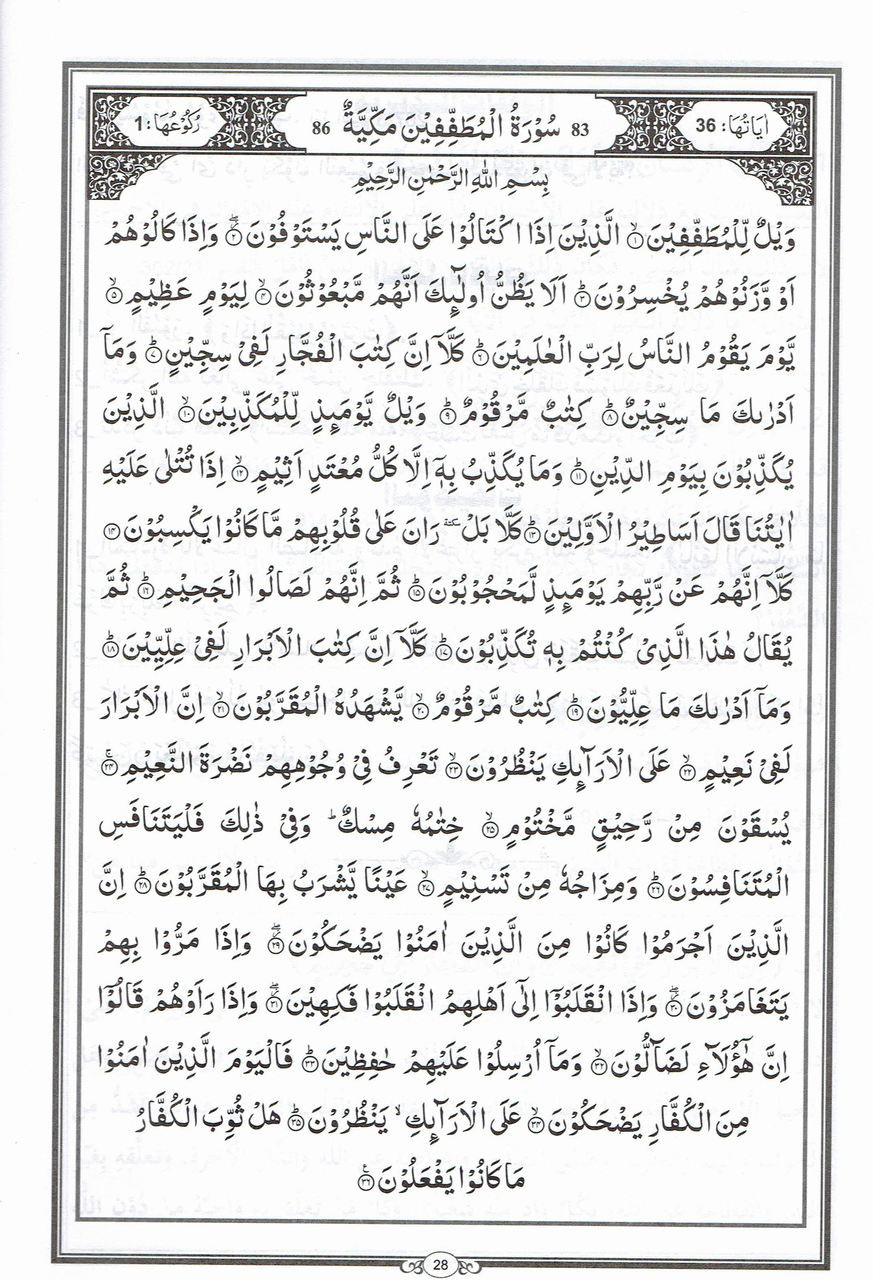 اٰيَاتُهَا: 36
83 سُوْرَةُ الْمُطَفِّفِيْنَ مَكِّيَّةٌ 86
رُكُوْعُهَا: 1
بِسْمِ اللهِ الرَّحْمٰنِ الرَّحِيْمِ
وَيْلٌ لِّلْمُطَفِّفِيْنَ ۙ﴿١﴾ الَّذِيْنَ اِذَا اكْتَالُوْا عَلَى النَّاسِ يَسْتَوْفُوْنَ ۖ﴿٢﴾ وَاِذَا كَالُوْهُمْ
اَوْ وَّزَنُوْهُمْ يُخْسِرُوْنَ ؕ﴿٣﴾ اَلَا يَظُنُّ اُولٰٓئِكَ اَنَّهُمْ مَّبْعُوْثُوْنَ ۙ﴿٤﴾ لِيَوْمٍ عَظِيْمٍ ۙ﴿٥﴾
يَّوْمَ يَقُوْمُ النَّاسُ لِرَبِّ الْعٰلَمِيْنَ ؕ﴿٦﴾ كَلَّاۤ اِنَّ كِتٰبَ الْفُجَّارِ لَفِيْ سِجِّيْنٍ ؕ﴿٧﴾ وَمَاۤ
اَدْرٰىكَ مَا سِجِّيْنٌ ؕ﴿٨﴾ كِتٰبٌ مَّرْقُوْمٌ ؕ﴿٩﴾ وَيْلٌ يَّوْمَئِذٍ لِّلْمُكَذِّبِيْنَ ۙ﴿١٠﴾ الَّذِيْنَ
يُكَذِّبُوْنَ بِيَوْمِ الدِّيْنِ ؕ﴿١١﴾ وَمَا يُكَذِّبُ بِهٖۤ اِلَّا كُلُّ مُعْتَدٍ اَثِيْمٍ ۙ﴿١٢﴾ اِذَا تُتْلٰى عَلَيْهِ
اٰيٰتُنَا قَالَ اَسَاطِيْرُ الْاَوَّلِيْنَ ؕ﴿١٣﴾ كَلَّا بَلْ ٚ رَانَ عَلٰى قُلُوْبِهِمْ مَّا كَانُوْا يَكْسِبُوْنَ ﴿١٤﴾
كَلَّاۤ اِنَّهُمْ عَنْ رَّبِّهِمْ يَوْمَئِذٍ لَّمَحْجُوْبُوْنَ ؕ﴿١٥﴾ ثُمَّ اِنَّهُمْ لَصَالُوا الْجَحِيْمِ ؕ﴿١٦﴾ ثُمَّ
يُقَالُ هٰذَا الَّذِيْ كُنْتُمْ بِهٖ تُكَذِّبُوْنَ ؕ﴿١٧﴾ كَلَّاۤ اِنَّ كِتٰبَ الْاَبْرَارِ لَفِيْ عِلِّيِّيْنَ ؕ﴿١٨﴾
وَمَاۤ اَدْرٰىكَ مَا عِلِّيُّوْنَ ؕ﴿١٩﴾ كِتٰبٌ مَّرْقُوْمٌ ۙ﴿٢٠﴾ يَّشْهَدُهُ الْمُقَرَّبُوْنَ ؕ﴿٢١﴾ اِنَّ الْاَبْرَارَ
لَفِيْ نَعِيْمٍ ۙ﴿٢٢﴾ عَلَى الْاَرَآئِكِ يَنْظُرُوْنَ ۙ﴿٢٣﴾ تَعْرِفُ فِيْ وُجُوْهِهِمْ نَضْرَةَ النَّعِيْمِ ۚ﴿٢٤﴾
يُسْقَوْنَ مِنْ رَّحِيْقٍ مَّخْتُوْمٍ ۙ﴿٢٥﴾ خِتٰمُهٗ مِسْكٌ ؕ وَفِيْ ذٰلِكَ فَلْيَتَنَافَسِ
الْمُتَنَافِسُوْنَ ؕ﴿٢٦﴾ وَمِزَاجُهٗ مِنْ تَسْنِيْمٍ ۙ﴿٢٧﴾ عَيْنًا يَّشْرَبُ بِهَا الْمُقَرَّبُوْنَ ؕ﴿٢٨﴾ اِنَّ
الَّذِيْنَ اَجْرَمُوْا كَانُوْا مِنَ الَّذِيْنَ اٰمَنُوْا يَضْحَكُوْنَ ۖ﴿٢٩﴾ وَاِذَا مَرُّوْا بِهِمْ
يَتَغَامَزُوْنَ ۖ﴿٣٠﴾ وَاِذَا انْقَلَبُوْۤا اِلٰٓى اَهْلِهِمُ انْقَلَبُوْا فَكِهِيْنَ ۖ﴿٣١﴾ وَاِذَا رَاَوْهُمْ قَالُوْۤا
اِنَّ هٰٓؤُلَآءِ لَضَآلُّوْنَ ۙ﴿٣٢﴾ وَمَاۤ اُرْسِلُوْا عَلَيْهِمْ حٰفِظِيْنَ ؕ﴿٣٣﴾ فَالْيَوْمَ الَّذِيْنَ اٰمَنُوْا
مِنَ الْكُفَّارِ يَضْحَكُوْنَ ۙ﴿٣٤﴾ عَلَى الْاَرَآئِكِ ۙ يَنْظُرُوْنَ ؕ﴿٣٥﴾ هَلْ ثُوِّبَ الْكُفَّارُ
مَا كَانُوْا يَفْعَلُوْنَ ﴿٣٦﴾
28